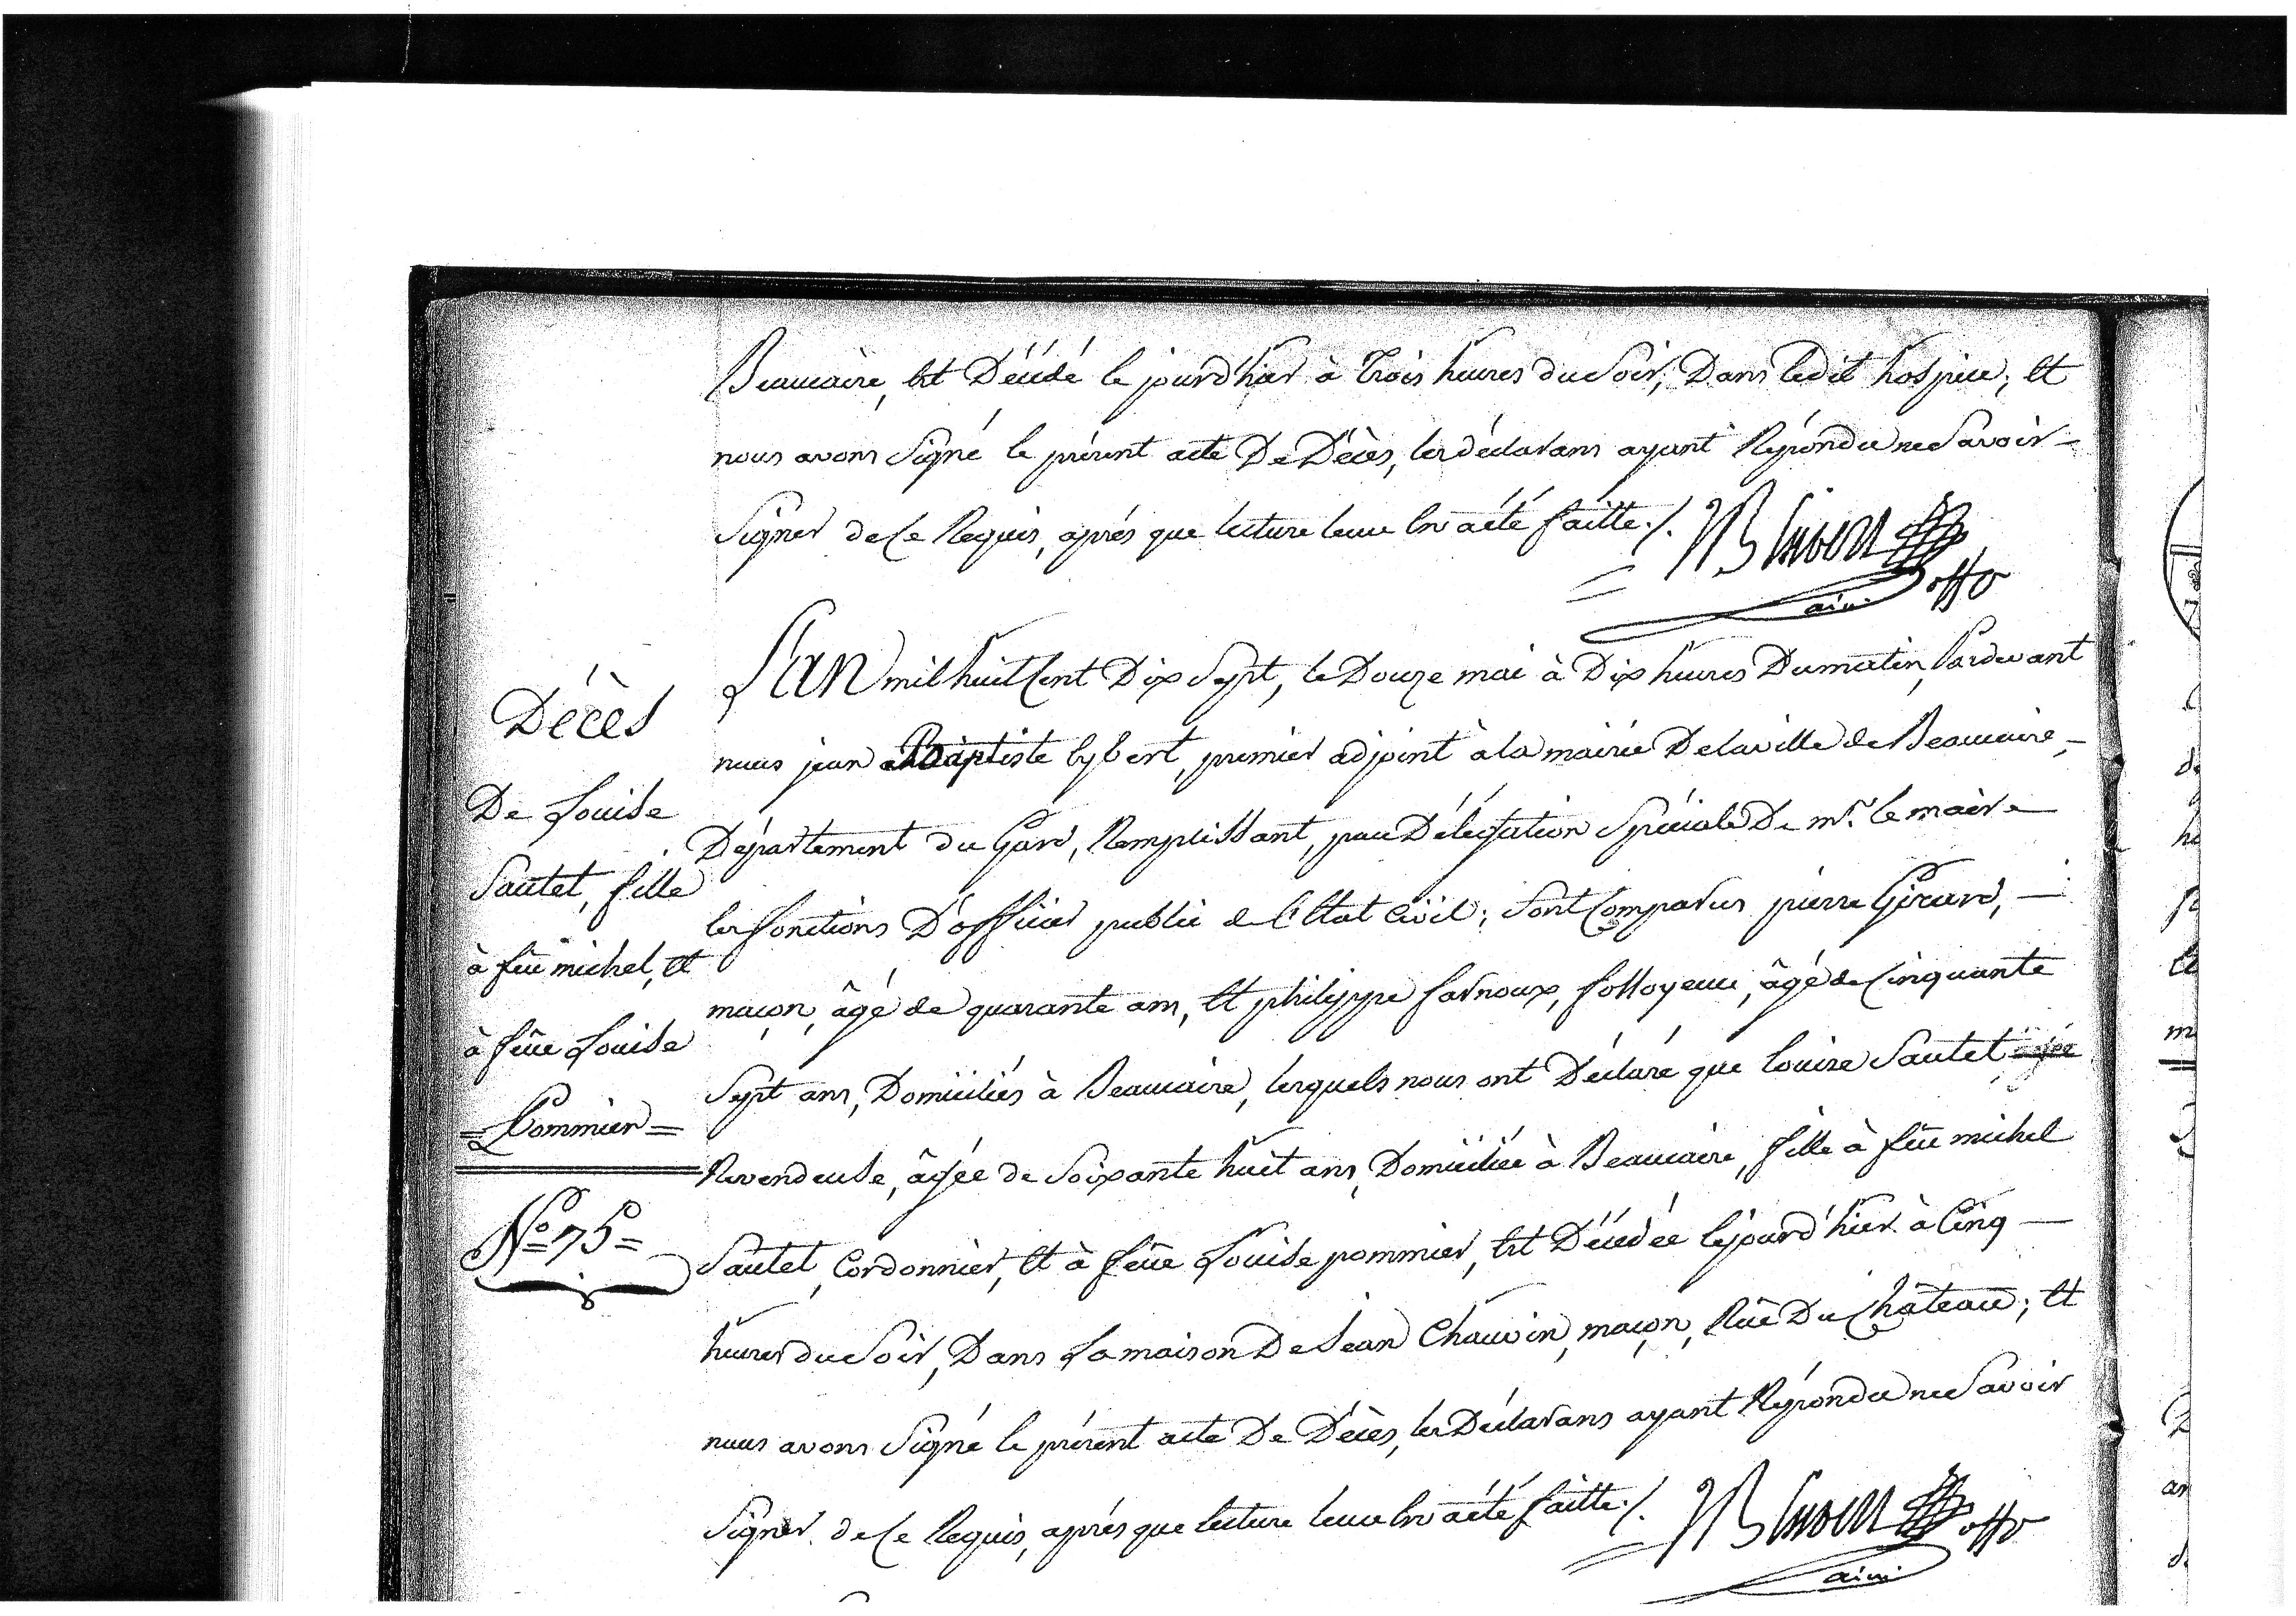 Beaucaire, Est Décédé le jourd'hier à Trois heures du Soir, Dans ledit hospice; Et
nous avons Signé le présent acte De Décès, les déclarans ayant Répondu ne Savoir =
Signer de Ce Requis, après que lecture leur En a été faitte ./.
ainé off.er
L'an mil huit Cent Dix Sept, le Douze mai à Dix heures Du matin, Pardevant
nous jean Baptiste premier adjoint à la mairie De la ville de Beaucaire, -
Département du Gard, Remplissant, par Délégation Spéciale De mr. le maire
les fonctions D'officier public de l'Etat Civil; Sont Comparus pierre Girard, —
maçon, âgé de quarante ans, Et philippe farnoux, fossoyeur, âgé de Cinquante
Sept ans, Domiciliés à Beaucaire, lesquels nous ont Déclaré que louise Sautet
Revendeuse, âgée de Soixante huit ans, Domiciliée à Beaucaire, fille à feu michel
Sautet, Cordonnier, Et à feüe Louise pommier, Est Décédée lejourd'hier à Cinq —
heures du Soir, Dans La maison De Jean Chauvin, maçon, Rüe Du Château; Et
nous avons Signé le présent acte De Décès, les Déclarans ayant Répondu ne Savoir
Signer de Ce Requis, après que lecture leur En a été faitte ./.
ainé off.er
Décès
De Louise
Sautet, fille
à feu michel, Et
à feüe Louise
= Pommier =
No. 75 =